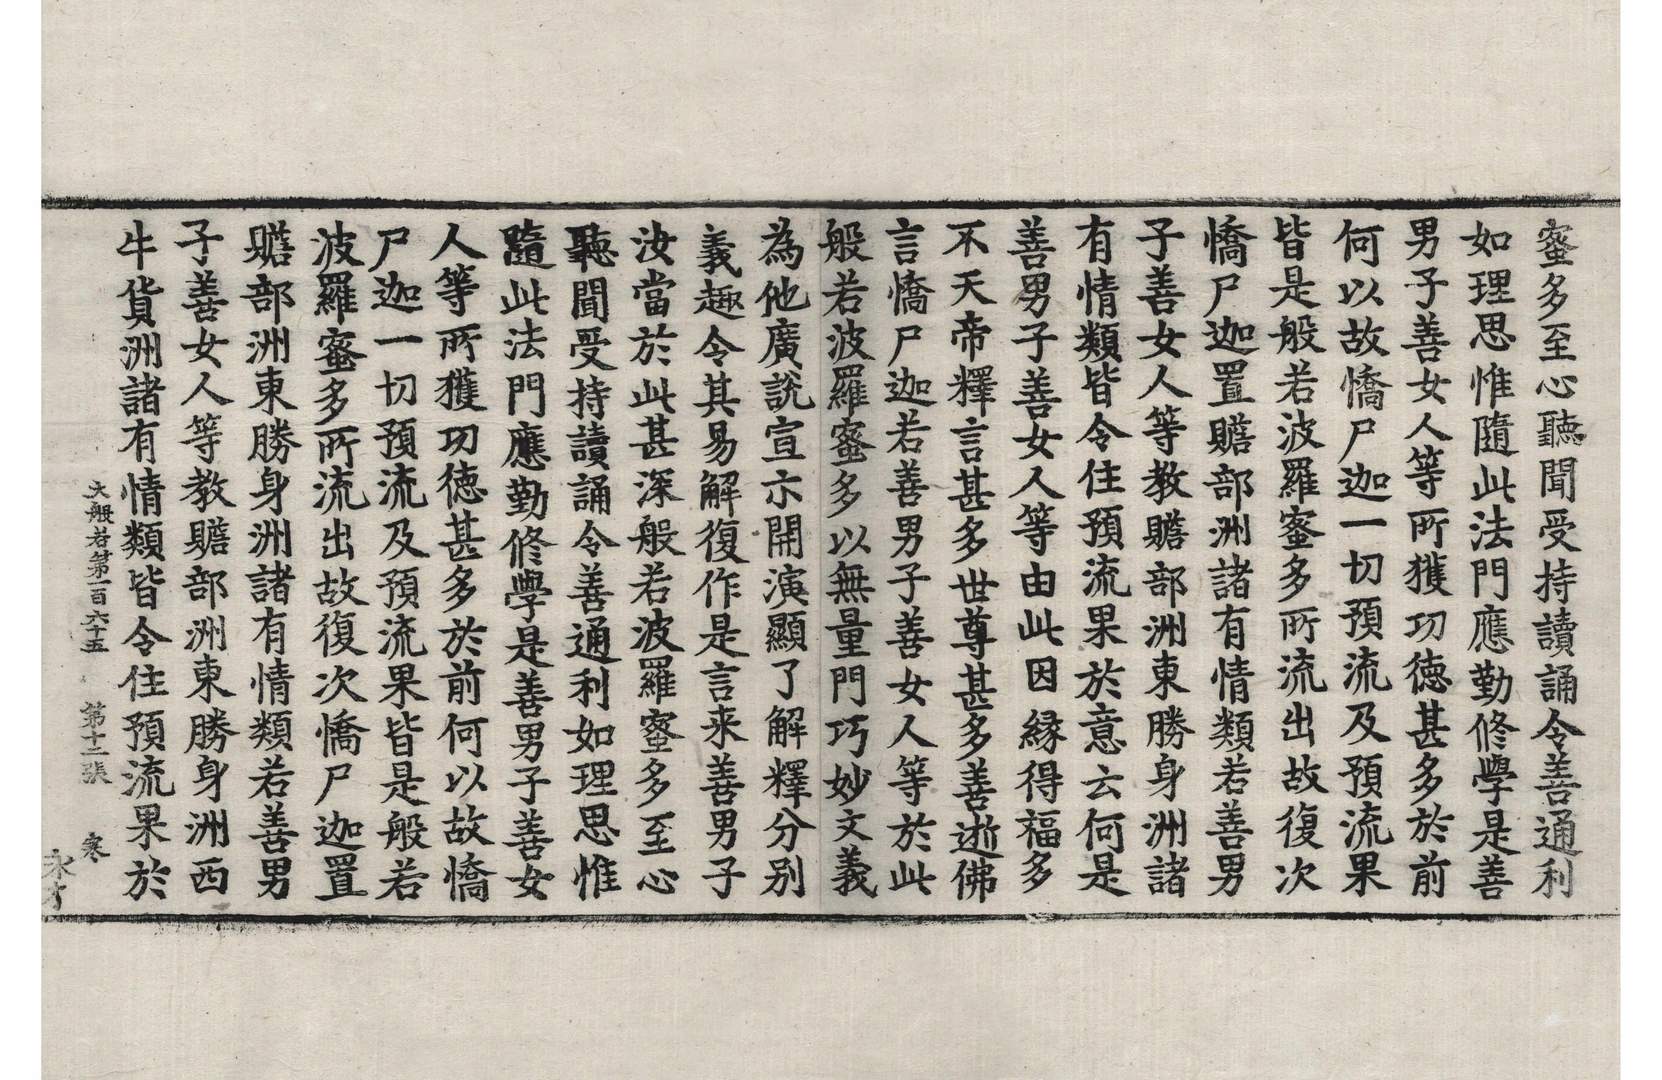 蜜多至心聽聞受持讀誦令善通利
如理思惟隨此法門應勤修學是善
男子善女人等所獲功德甚多於前
何以故憍尸迦一切預流及預流果
皆是般若波羅蜜多所流出故復次
憍尸迦置贍部洲諸有情類若善男
子善女人等教贍部洲東勝身洲諸
有情類皆令住預流果於意云何是
善男子善女人等由此因緣得福多
不天帝釋言甚多世尊甚多善逝佛
言憍尸迦若善男子善女人等於此
般若波羅蜜多以無量門巧妙文義
為他廣說宣示開演顯了解釋分別
義趣令其易解復作是言来善男子
汝當於此甚深般若波羅蜜多至心
聽聞受持讀誦令善通利如理思惟
隨此法門應勤修學是善男子善女
人等所獲功德甚多於前何以故憍
尸迦一切預流及預流果皆是般若
波羅蜜多所流出故復次憍尸迦置
贍部洲東勝身洲諸有情類若善男
子善女人等教贍部洲東勝身洲西
牛貨洲諸有情類皆令住預流果於
大般若第一百六十五 第十二張 寒
永才